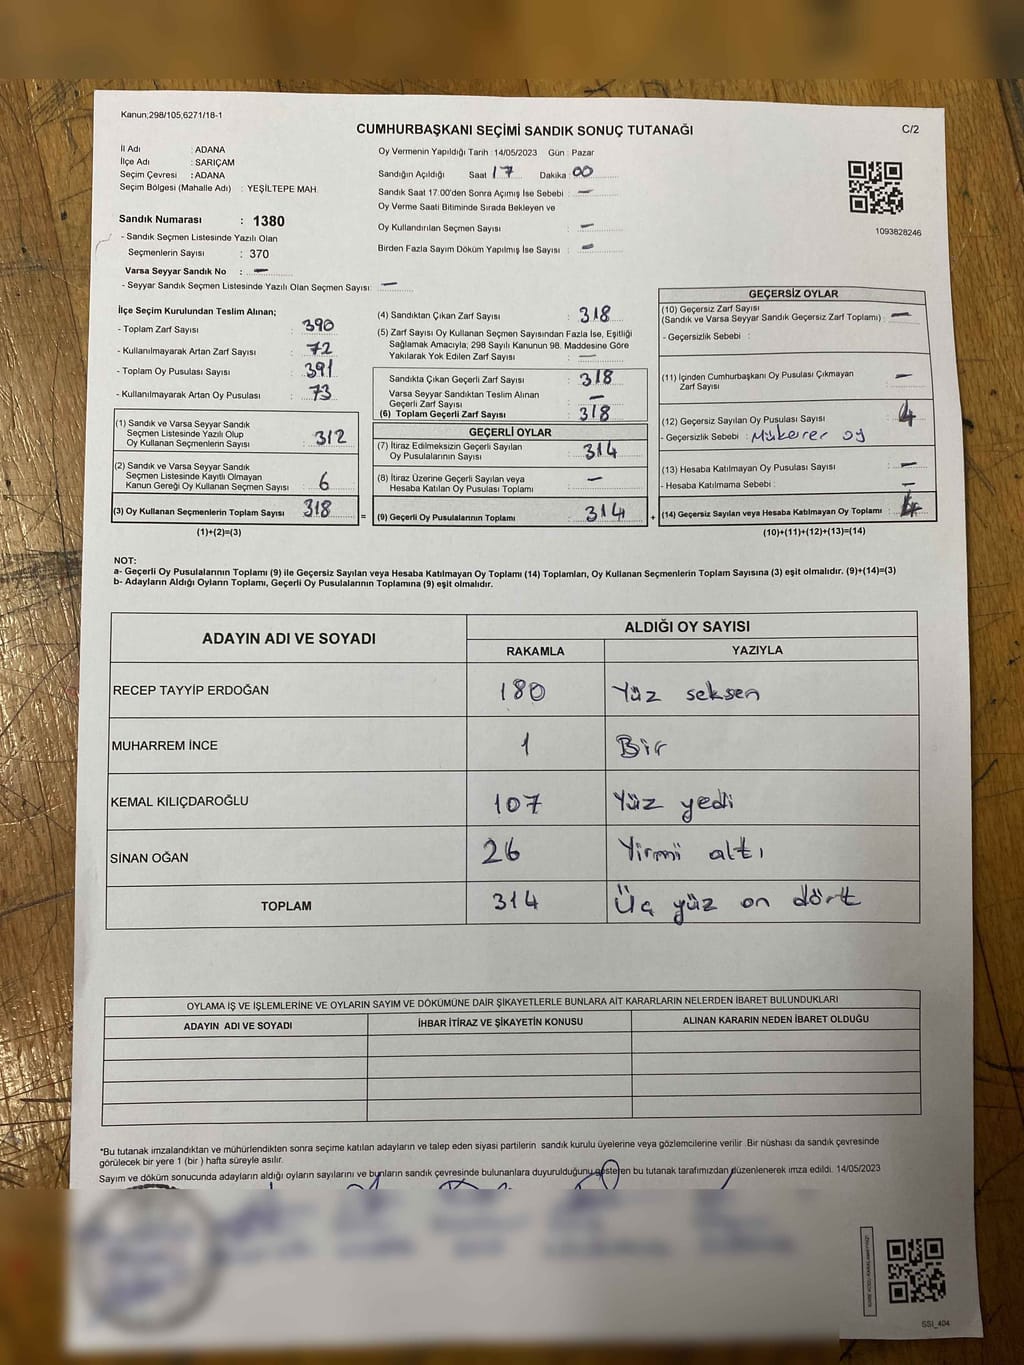 Kanun;298/105,6271/18-1
CUMHURBAŞKANI SEÇİMİ SANDIK SONUÇ TUTANAĞI
C/2
İl Adı : ADANA
İlçe Adı : SARIÇAM
Seçim Çevresi : ADANA
Seçim Bölgesi (Mahalle Adı) : YEŞİLTEPE MAH.
Sandık Numarası : 1380
- Sandık Seçmen Listesinde Yazılı Olan
Seçmenlerin Sayısı : 370
Varsa Seyyar Sandık No : —
- Seyyar Sandık Seçmen Listesinde Yazılı Olan Seçmen Sayısı: —
Oy Vermenin Yapıldığı Tarih : 14/05/2023 Gün : Pazar
Sandığın Açıldığı Saat : 17 Dakika : 00
Sandık Saat 17.00'den Sonra Açımış İse Sebebi : —
Oy Verme Saati Bitiminde Sırada Bekleyen ve
Oy Kullandırılan Seçmen Sayısı : —
Birden Fazla Sayım Döküm Yapılmış İse Sayısı : —
1093828246
İlçe Seçim Kurulundan Teslim Alınan;
- Toplam Zarf Sayısı : 390
- Kullanılmayarak Artan Zarf Sayısı : 72
- Toplam Oy Pusulası Sayısı : 391
- Kullanılmayarak Artan Oy Pusulası : 73
(1) Sandık ve Varsa Seyyar Sandık
Seçmen Listesinde Yazılı Olup
Oy Kullanan Seçmenlerin Sayısı : 312
(2) Sandık ve Varsa Seyyar Sandık
Seçmen Listesinde Kayıtlı Olmayan
Kanun Gereği Oy Kullanan Seçmen Sayısı : 6
(3) Oy Kullanan Seçmenlerin Toplam Sayısı : 318
(1)+(2)=(3)
=
(4) Sandıktan Çıkan Zarf Sayısı : 318
(5) Zarf Sayısı Oy Kullanan Seçmen Sayısından Fazla İse, Eşitliği
Sağlamak Amacıyla; 298 Sayılı Kanunun 98. Maddesine Göre
Yakılarak Yok Edilen Zarf Sayısı : —
Sandıkta Çıkan Geçerli Zarf Sayısı : 318
Varsa Seyyar Sandıktan Teslim Alınan
Geçerli Zarf Sayısı : —
(6) Toplam Geçerli Zarf Sayısı : 318
GEÇERLİ OYLAR
(7) İtiraz Edilmeksizin Geçerli Sayılan
Oy Pusulalarının Sayısı : 314
(8) İtiraz Üzerine Geçerli Sayılan veya
Hesaba Katılan Oy Pusulası Toplamı : —
(9) Geçerli Oy Pusulalarının Toplamı : 314
+
GEÇERSİZ OYLAR
(10) Geçersiz Zarf Sayısı
(Sandık ve Varsa Seyyar Sandık Geçersiz Zarf Toplamı) : —
- Geçersizlik Sebebi :
(11) İçinden Cumhurbaşkanı Oy Pusulası Çıkmayan
Zarf Sayısı : —
(12) Geçersiz Sayılan Oy Pusulası Sayısı : 4
- Geçersizlik Sebebi : Mükerer oy
(13) Hesaba Katılmayan Oy Pusulası Sayısı : —
- Hesaba Katılmama Sebebi : —
(14) Geçersiz Sayılan veya Hesaba Katılmayan Oy Toplamı : 4
(10)+(11)+(12)+(13)=(14)
NOT:
a- Geçerli Oy Pusulalarının Toplamı (9) ile Geçersiz Sayılan veya Hesaba Katılmayan Oy Toplamı (14) Toplamları, Oy Kullanan Seçmenlerin Toplam Sayısına (3) eşit olmalıdır. (9)+(14)=(3)
b- Adayların Aldığı Oyların Toplamı, Geçerli Oy Pusulalarının Toplamına (9) eşit olmalıdır.
ADAYIN ADI VE SOYADI
ALDIĞI OY SAYISI
RAKAMLA YAZIYLA
RECEP TAYYİP ERDOĞAN 180 Yüz seksen
MUHARREM İNCE 1 Bir
KEMAL KILIÇDAROĞLU 107 Yüz yedi
SİNAN OĞAN 26 Yirmi altı
TOPLAM 314 Üç yüz on dört
OYLAMA İŞ VE İŞLEMLERİNE VE OYLARIN SAYIM VE DÖKÜMÜNE DAİR ŞİKAYETLERLE BUNLARA AİT KARARLARIN NELERDEN İBARET BULUNDUKLARI
ADAYIN ADI VE SOYADI İHBAR İTİRAZ VE ŞİKAYETİN KONUSU ALINAN KARARIN NEDEN İBARET OLDUĞU
*Bu tutanak imzalandıktan ve mühürlendikten sonra seçime katılan adayların ve talep eden siyasi partilerin sandık kurulu üyelerine veya gözlemcilerine verilir .Bir nüshası da sandık çevresinde
görülecek bir yere 1 (bir ) hafta süreyle asılır.
Sayım ve döküm sonucunda adayların aldığı oyların sayılarını ve bunların sandık çevresinde bulunanlara duyurulduğunu gösteren bu tutanak tarafımızdan düzenlenerek imza edildi. 14/05/2023
SSI_404